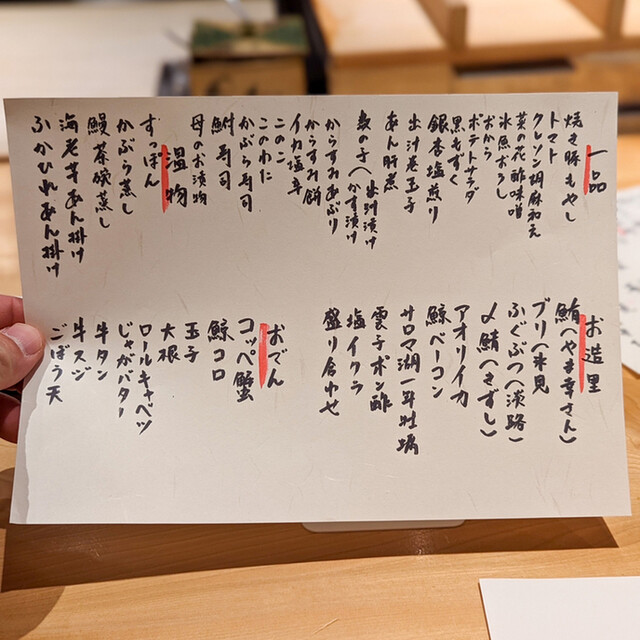 一品
焼き豚もやし
トマト
クレソン胡麻和え
菜の花酢味噌
氷魚おろし
おから
ポテトサラダ
黒もずく
銀杏塩煎り
出汁巻玉子
あん肝煮
数の子へ出汁漬け
かす漬け
からすみあぶり
からすみ餅
イカ塩辛
このこ
このわた
かぶら寿司
鮒寿司
母のお漬物
温物
すっぽん
かぶら蒸し
鰻茶碗蒸し
海老芋あん掛け
ふかひれあん掛け
お造里
鮪(やま幸さん)
ブリ(氷見
ふぐぶつ(淡路)
〆鯖(きずし)
アオリイカ
鯨ベーコン
サロマ湖一年牡蠣
雲子ポン酢
塩イクラ
盛り合わせ
おでん
コッペ蟹
鯨コロ
玉子
大根
ロールキャベツ
じゃがバター
牛タン
牛スジ
ごぼう天